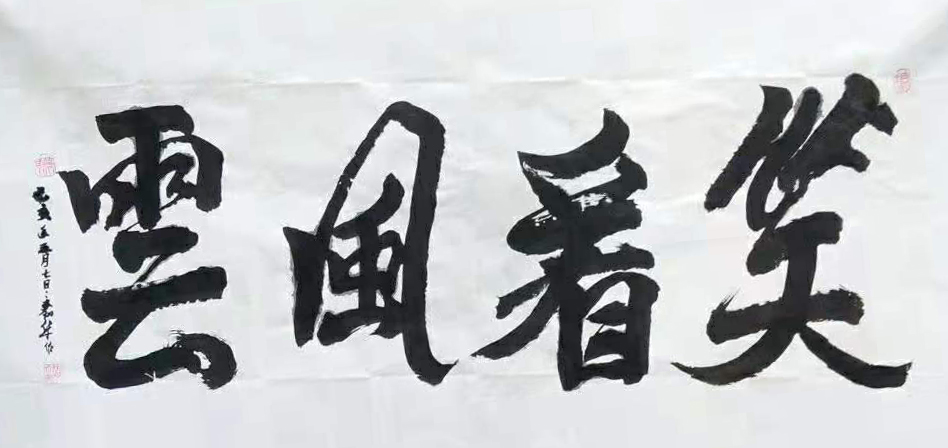 笑看風雲
己亥年五月七日